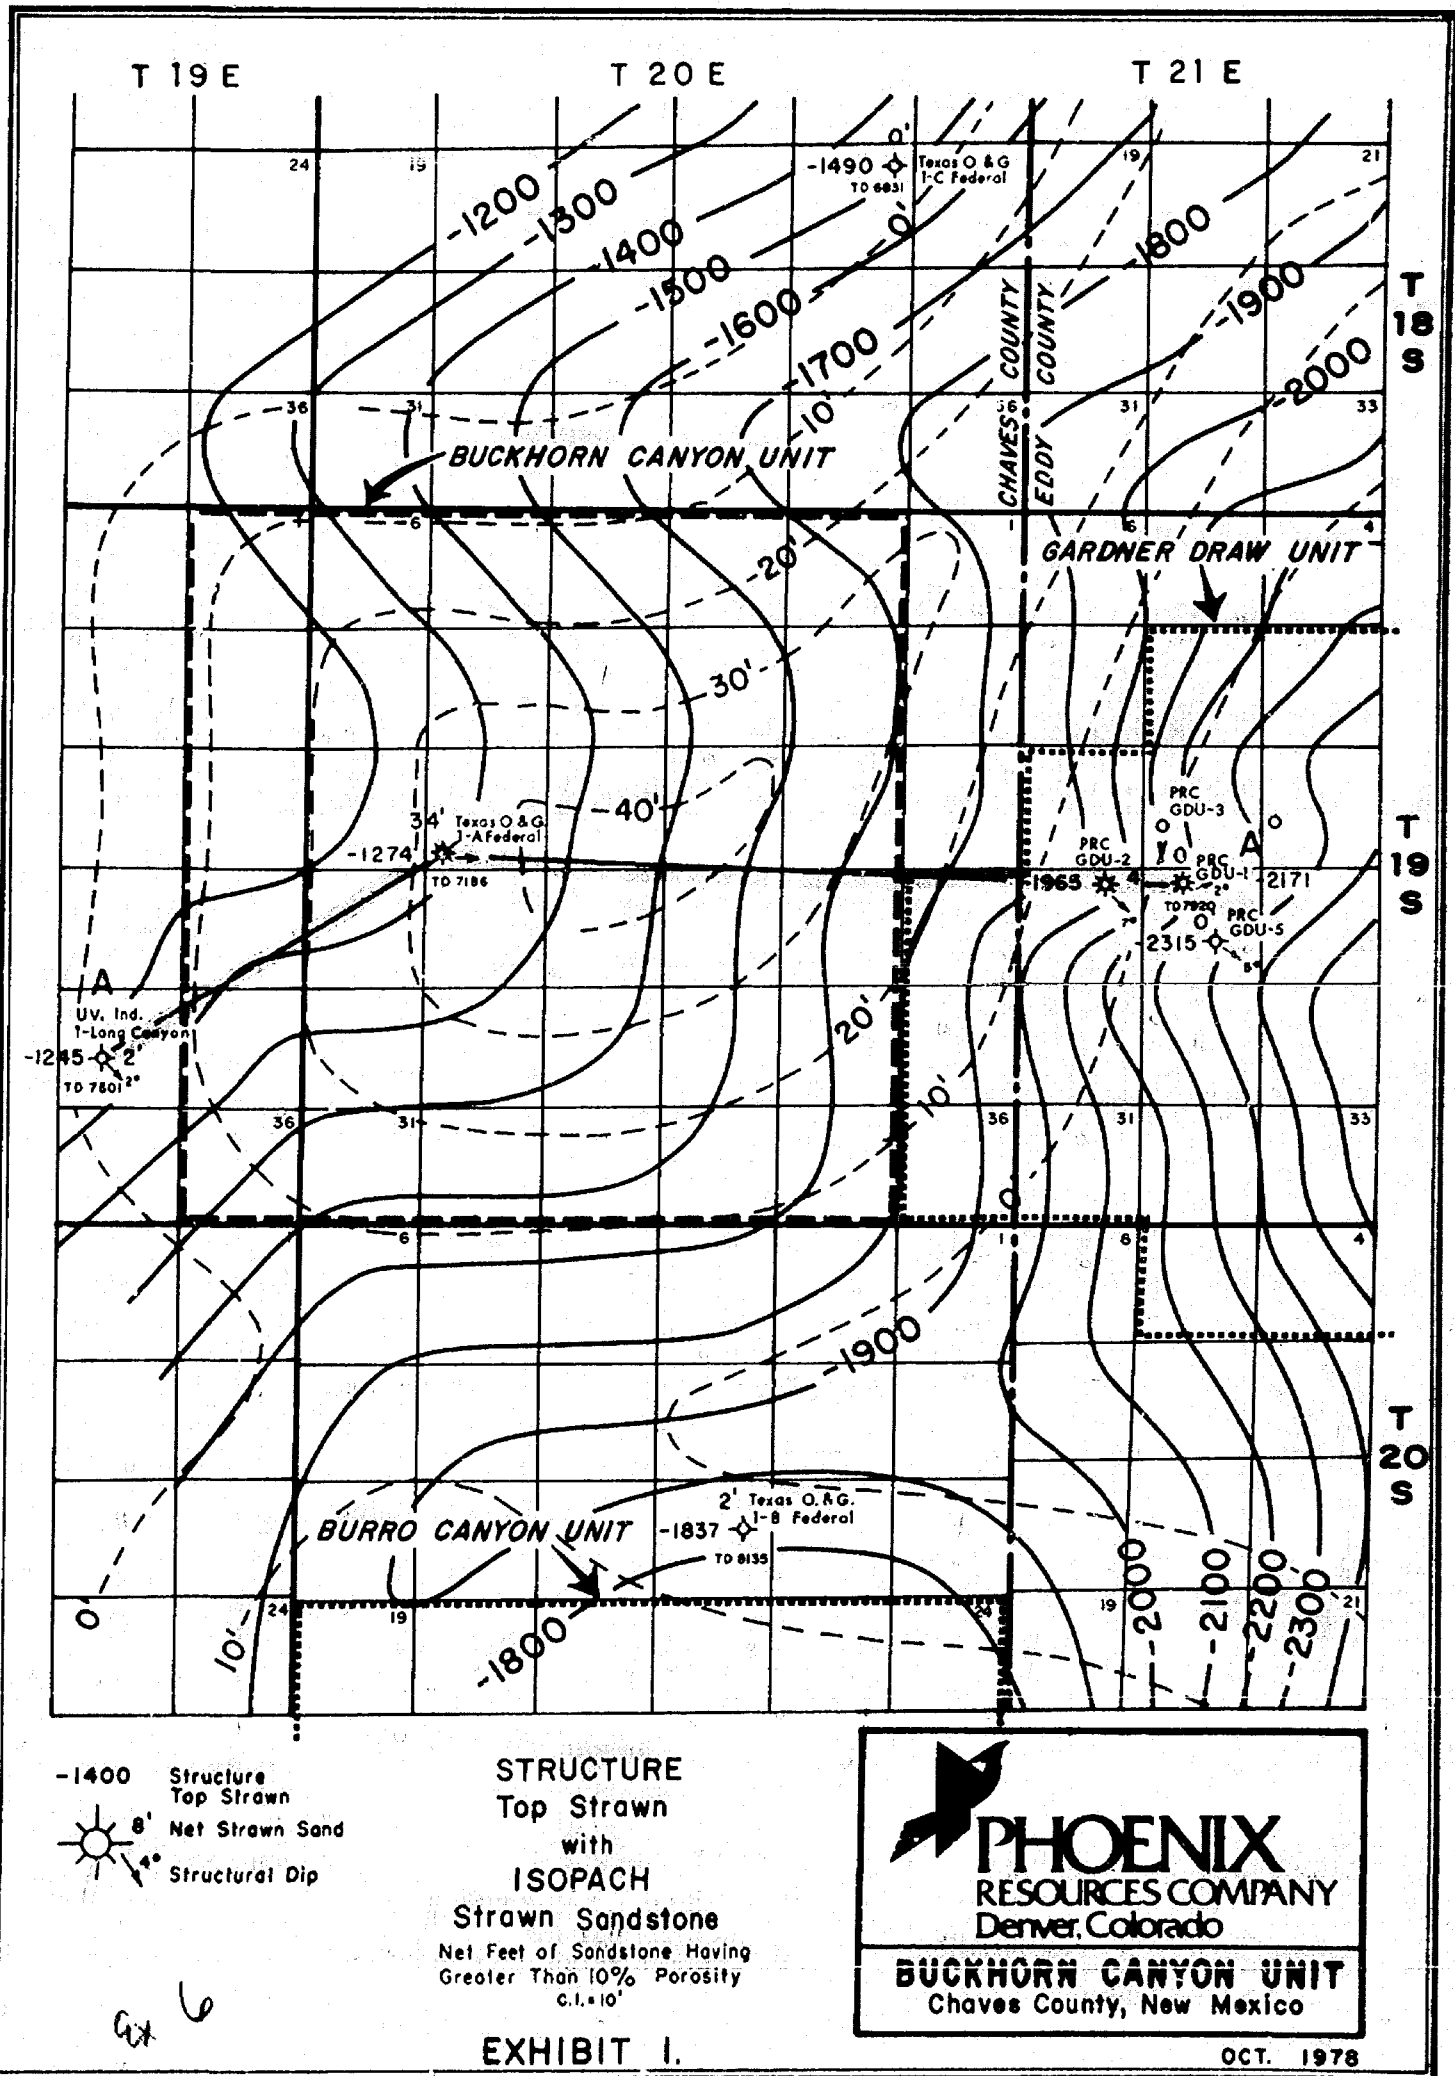 T 19 E
T 20 E
T 21 E
24
19
0'
-1490
Texas O & G
1-C Federal
TD 6831
19
21
-1200
-1300
-1400
-1500
-1600
-1700
0'
-1800
-1900
-2000
T
18
S
CHAVES COUNTY
EDDY COUNTY
36
31
10'
36
31
33
BUCKHORN CANYON UNIT
6
6
4
GARDNER DRAW UNIT
20'
30'
40'
34'
Texas O & G
1-A Federal
-1274
TD 7186
PRC
GDU-3
PRC
GDU-2
A
T
19
S
PRC
GDU-1
-1965
4'
2°
-2171
TD 7920
7°
0
PRC
GDU-5
-2315
5°
A
UV. Ind.
1-Long Canyon
-1245
2'
2°
TD 7601
20'
10'
36
31
36
31
33
0
6
1
6
4
-1900
T
20
S
2'
Texas O. & G.
1-B Federal
-1837
TD 8135
BURRO CANYON UNIT
0'
10'
24
19
24
19
21
-1800
-2000
-2100
-2200
-2300
-1400
Structure
Top Strawn
8'
Net Strawn Sand
4°
Structural Dip
STRUCTURE
Top Strawn
with
ISOPACH
Strawn Sandstone
Net Feet of Sandstone Having
Greater Than 10% Porosity
C.I. = 10'
EXHIBIT 1.
Ex 6
PHOENIX
RESOURCES COMPANY
Denver, Colorado
BUCKHORN CANYON UNIT
Chaves County, New Mexico
OCT. 1978